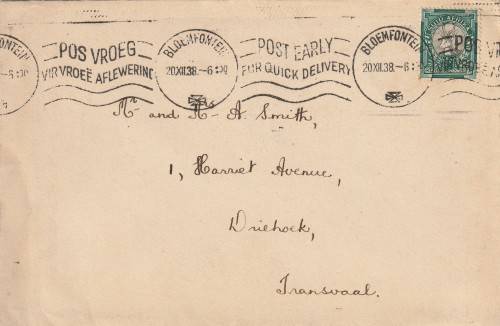 BLOEMFONTEIN
POS VROEG
VIR VROEË AFLEWERING
BLOEMFONTEIN
20XII.38.–6:30
POST EARLY
FOR QUICK DELIVERY
BLOEMFONTEIN
20XII.38.–6:
POS V
Mr. and Mrs. A. Smith,
1, Harriet Avenue,
Driehoek,
Transvaal.